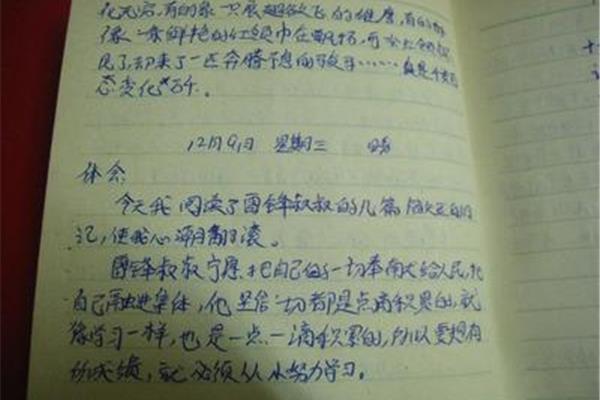 化无穷,有的象一只展翅欲飞的雄鹰,有的
象一条鲜艳的红领巾在飘扬,可
见了,却来了一匹奔腾不息的骏马……真是千姿百
态变化万千。
12月9日 星期三 晴
体会:
今天我阅读了雷锋叔叔的几篇
记,使我心潮翻滚。
雷锋叔叔宁愿把自己的一切奉献给人民,把
自己融进集体,他坚信一切都是点滴积累的,就
像学习一样,也是一点一滴积累的,所以要想有
好成绩,就必须从小努力学习。